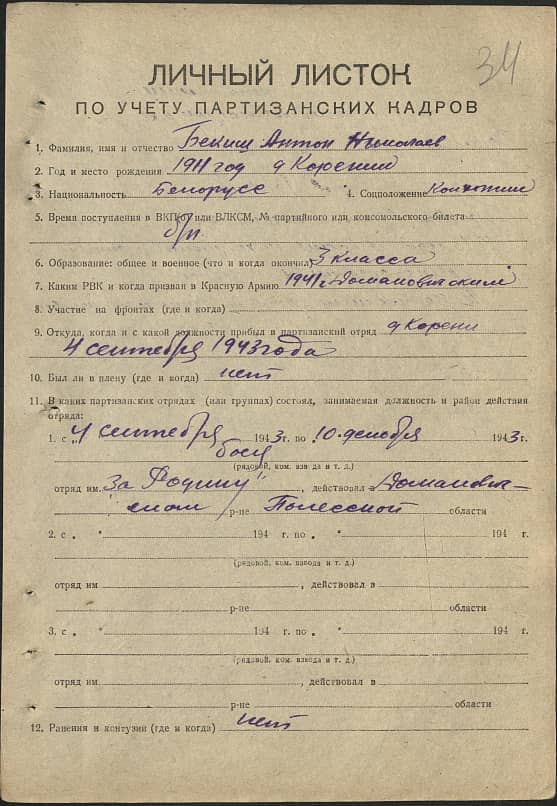 34
ЛИЧНЫЙ ЛИСТОК
ПО УЧЕТУ ПАРТИЗАНСКИХ КАДРОВ
1. Фамилия, имя и отчество Бекиш Антон Николаев
2. Год и место рождения 1911 год д Корении
3. Национальность Белорусс 4. Соцположение
5. Время поступления в ВКП(б) или ВЛКСМ, № партийного или комсомольского билета
б/п
6. Образование: общее и военное (что и когда окончил) 3 класса
7. Каким РВК и когда призван в Красную Армию 1941 г. Домановитским
8. Участие на фронтах (где и когда)
9. Откуда, когда и с какой должности прибыл в партизанский отряд д Корени
4 сентября 1943 года
10. Был ли в плену (где и когда) нет
11. В каких партизанских отрядах (или группах) состоял, занимаемая должность и район действия
отряда:
1. с „4 сентября 1943 г. по 10 декабря 1943 г.
боец
(рядовой, ком. взвода и т. д.)
отряд им. За Родину" , действовал в Домановит-
ском р-не Полесской области
2. с „ " 194 г. по „ " 194 г.
(рядовой, ком. взвода и т. д.)
отряд им , действовал в
р-не области
3. с „ " 194 г. по „ " 194 г.
(рядовой, ком. взвода и т. д.)
отряд им. , действовал в
р-не области
12. Ранения и контузии (где и когда) нет